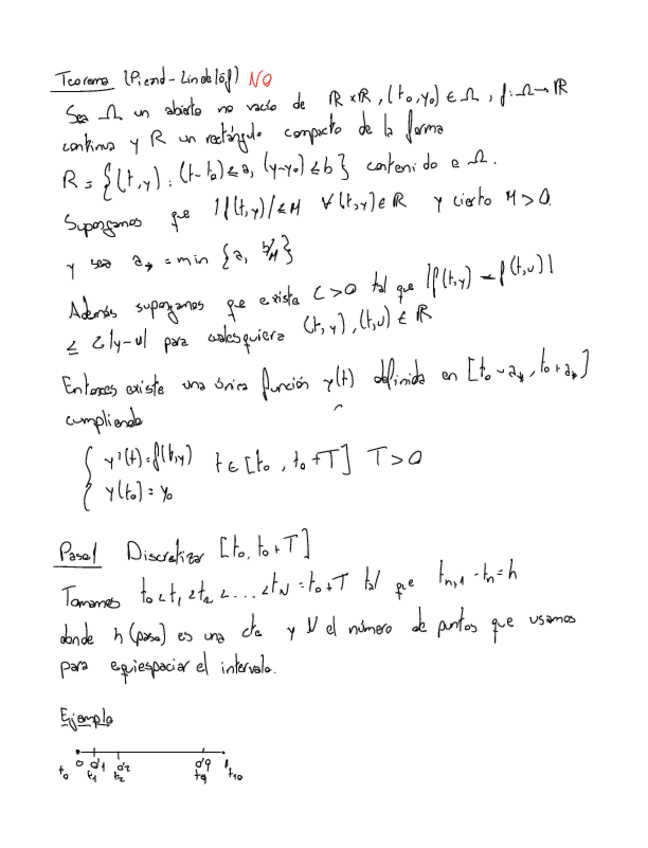 Teorema (Picard-Lindelöf) NO
Sea Ω un abierto no vacío de ℝ×ℝ, (t₀,y₀) ∈ Ω, f: Ω→ℝ
continua y R un rectángulo compacto de la forma
R = {(t,y) : (t-t₀) ≤ a, (y-y₀) ≤ b} contenido e Ω.
Supongamos que |f(t,y)| ≤ M ∀(t,y) ∈ R y cierto M > 0.
y sea a* = min {a, b/M}
Además supongamos que existe C > 0 tal que |f(t,y) - f(t,u)|
≤ C|y-u| para cualesquiera (t,y), (t,u) ∈ R
Entonces existe una única función y(t) definida en [t₀-a*, t₀+a*]
cumpliendo
{ y'(t) = f(t,y) t ∈ [t₀, t₀+T] T > 0
y(t₀) = y₀
Paso 1 Discretizar [t₀, t₀+T]
Tomamos t₀ < t₁ < t₂ < ... < t_N = t₀+T tal que t_{n+1} - t_n = h
donde h (paso) es una cte y N el número de puntos que usamos
para equiespaciar el intervalo.
Ejemplo
0 0'1 0'2 0'9 1
t₀ t₁ t₂ t₉ t₁₀